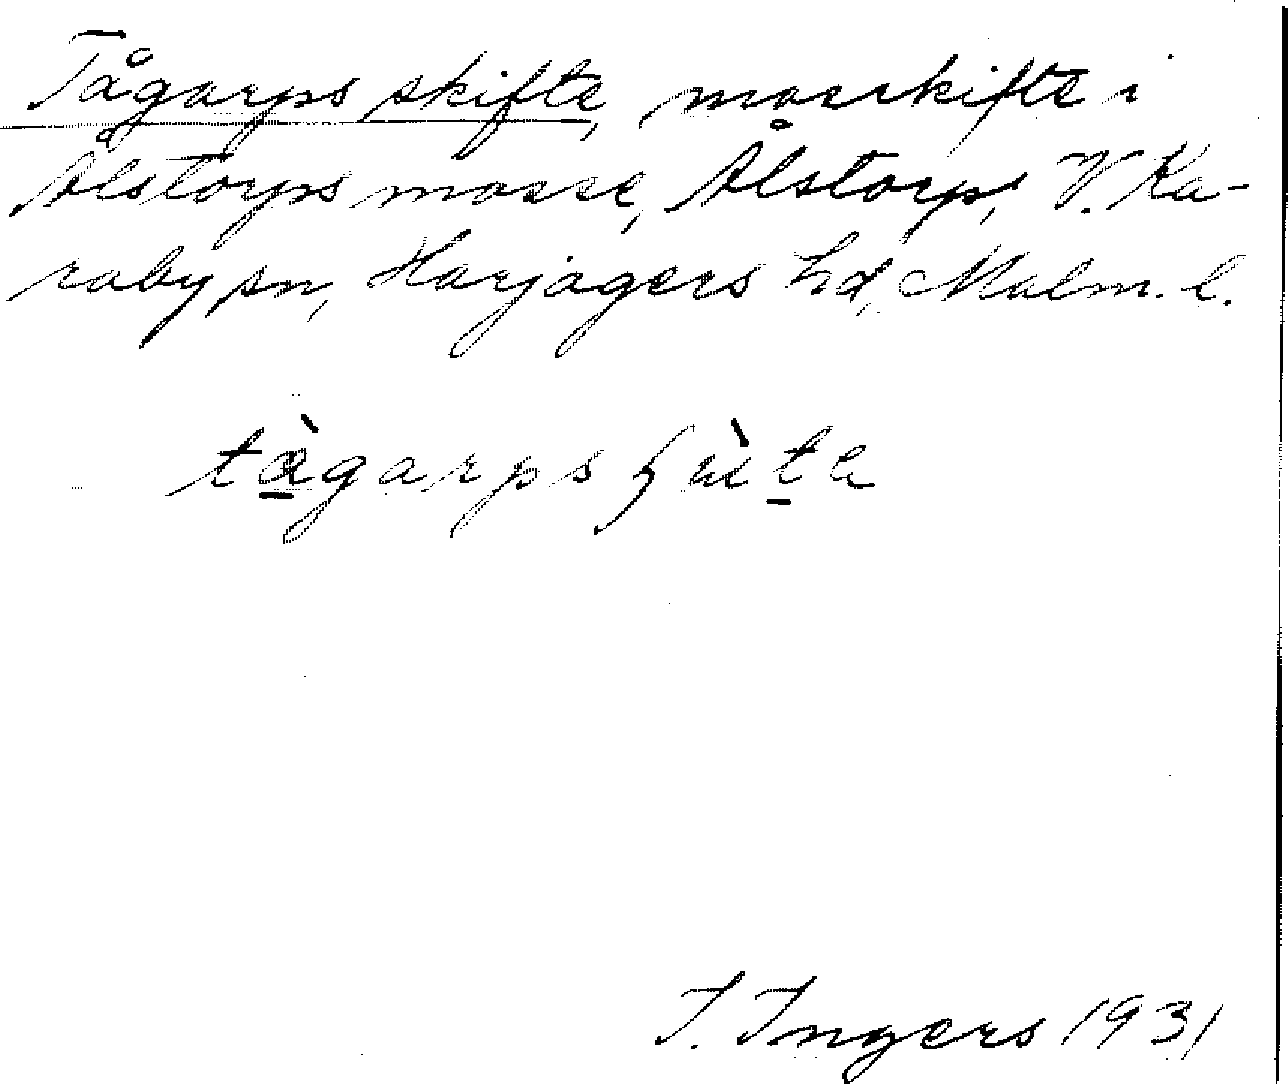 Tågarps skifte, mosskifte i
Ålstorps mosse, Ålstorp, V. Ka-
raby sn, Harjagers hd, Malm. l.
I. Ingers 1931